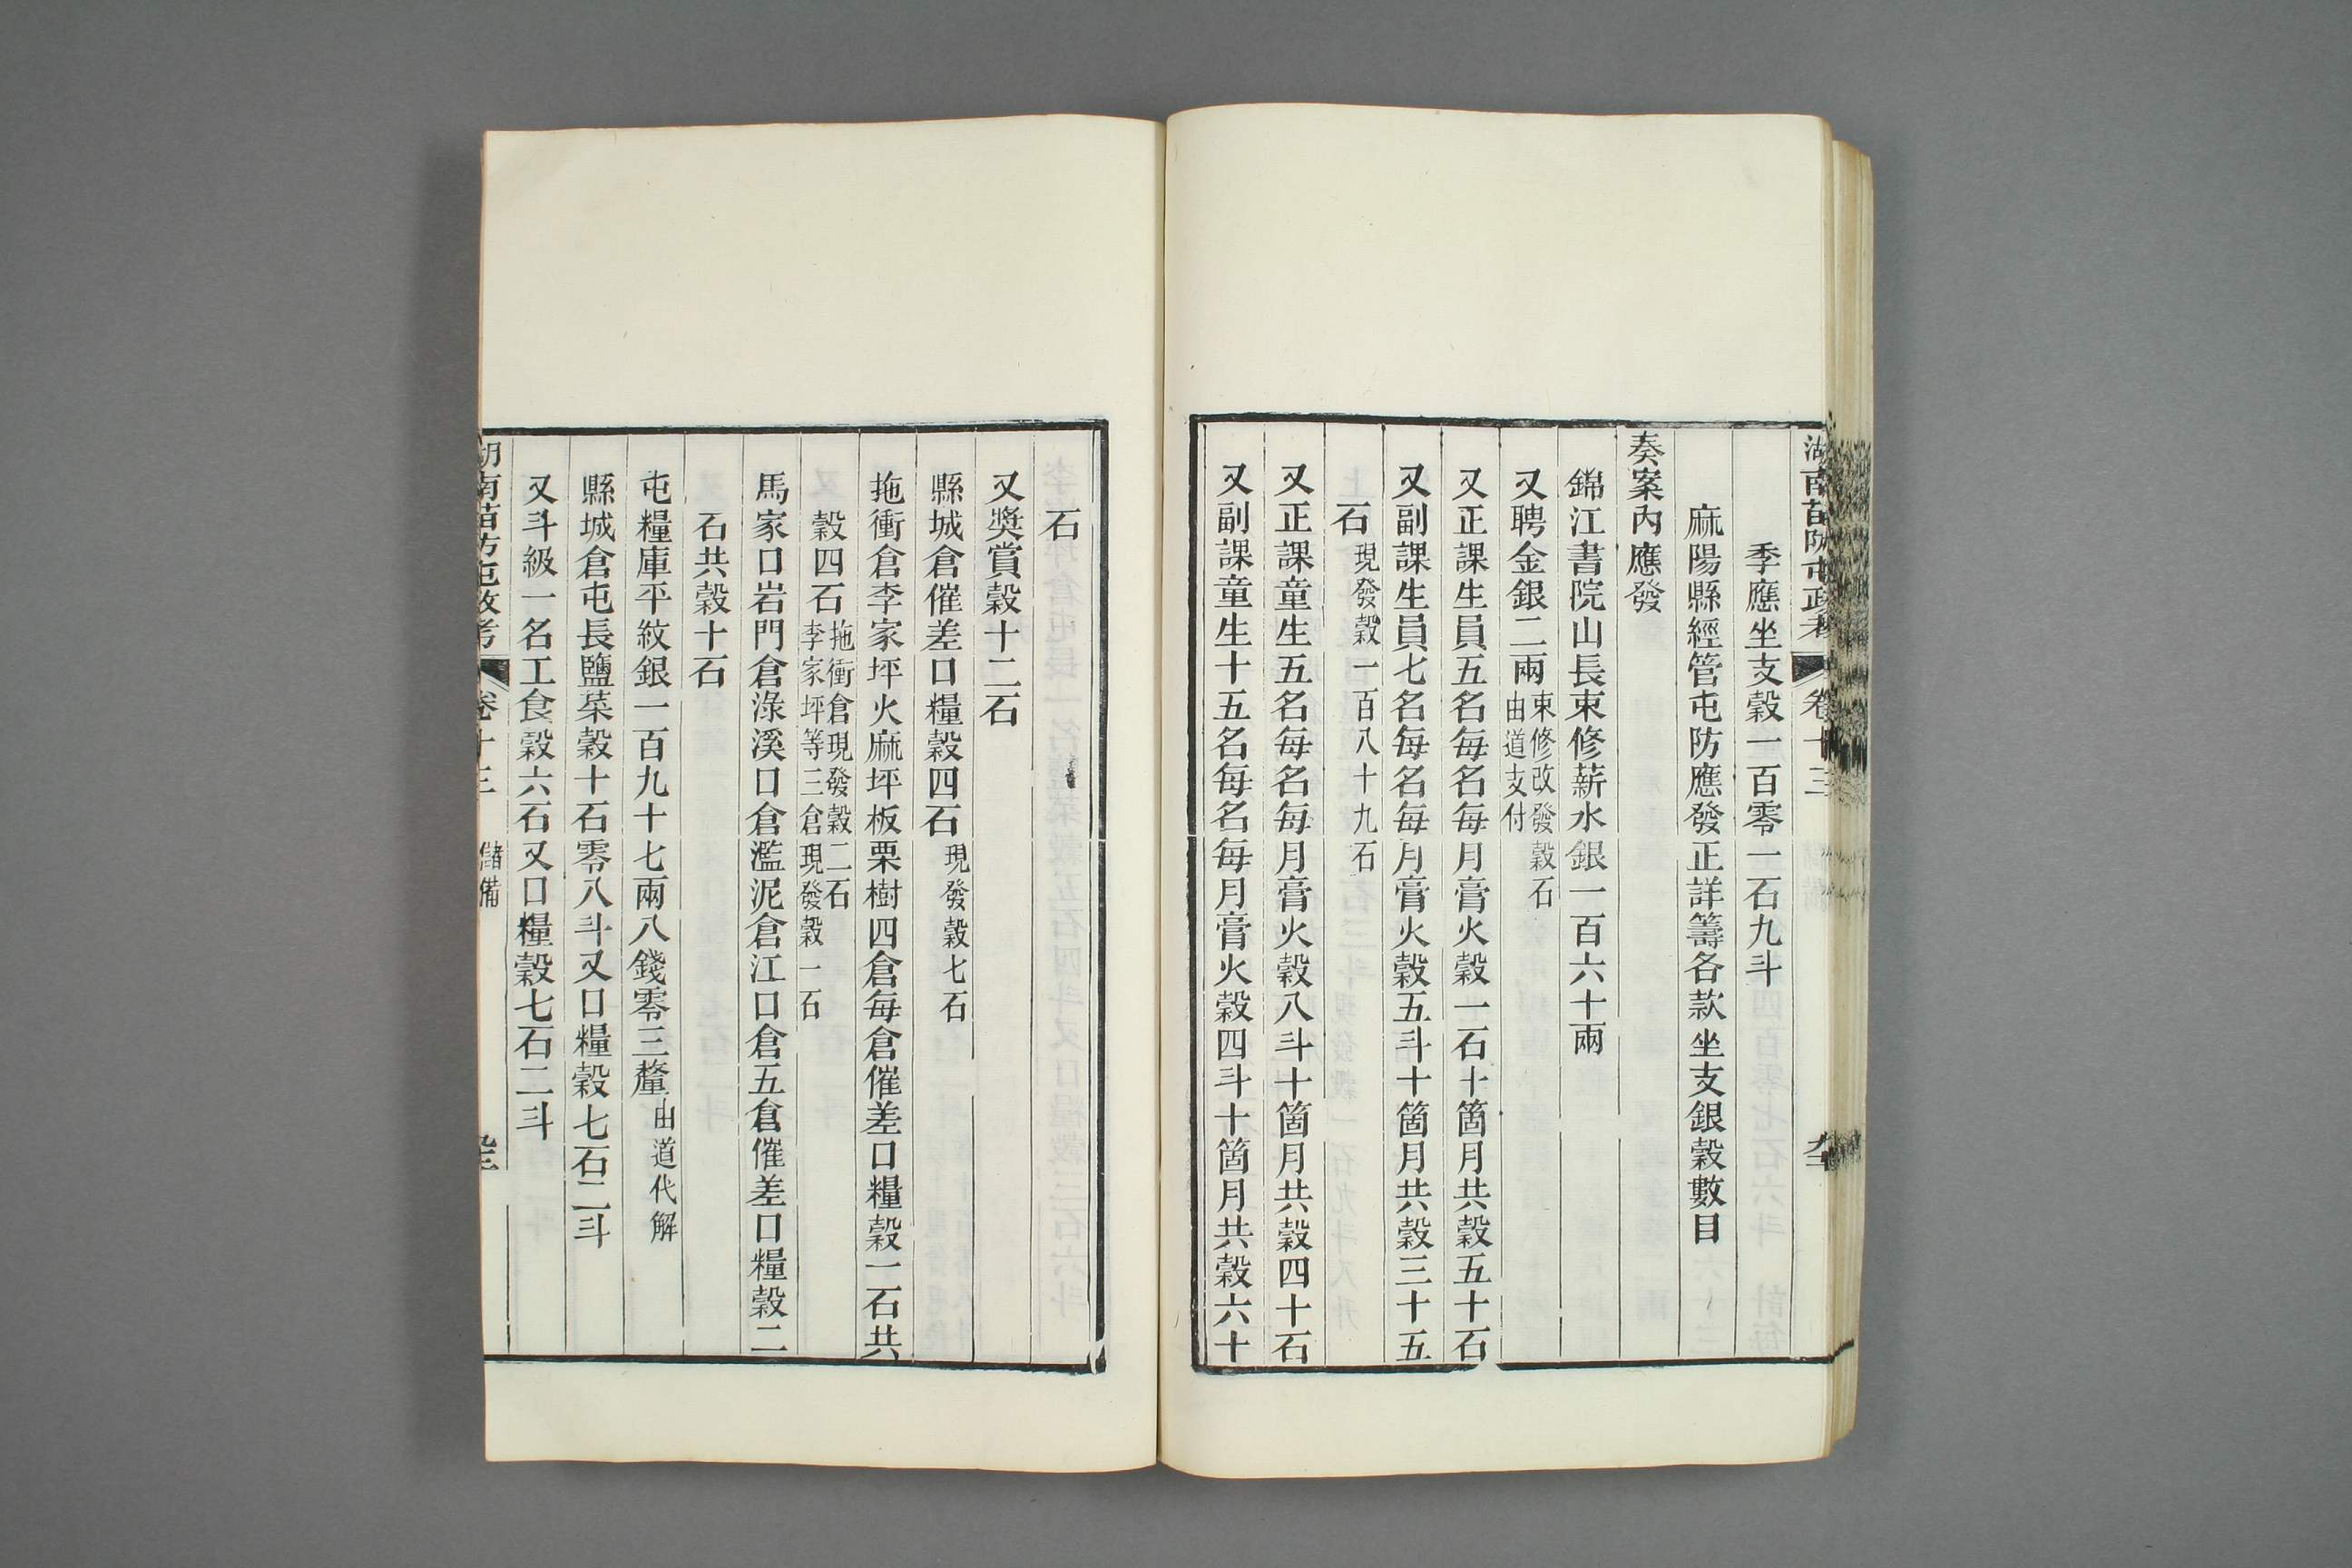 湖南苗防屯政考 卷十三
季應坐支穀一百零一石九斗
麻陽縣經管屯防應發正詳籌各款坐支銀穀數目
奏案內應發
錦江書院山長束修薪水銀一百六十兩
又聘金銀二兩東修改發穀石由道支付
又正課生員五名每名每月膏火穀一石十箇月共穀五十石
又副課生員七名每名每月膏火穀五斗十箇月共穀三十五
石現發穀一百八十九石
又正課童生五名每名每月膏火穀八斗十箇月共穀四十石
又副課童生十五名每名每月膏火穀四斗十箇月共穀六十
石
又獎賞穀十二石
縣城倉催差口糧穀四石現發穀七石
拖衝倉李家坪火麻坪板栗樹四倉每倉催差口糧穀一石共
穀四石拖衝倉現發穀二石李家坪等三倉現發穀一石
馬家口岩門倉淥溪口倉濫泥倉江口倉五倉催差口糧穀二
石共穀十石
屯糧庫平紋銀一百九十七兩八錢零三釐由道代解
縣城倉屯長鹽菜穀十石零八斗又口糧穀七石二斗
又斗級一名工食穀六石又口糧穀七石二斗
湖南苗防屯政考 卷十三 儲備